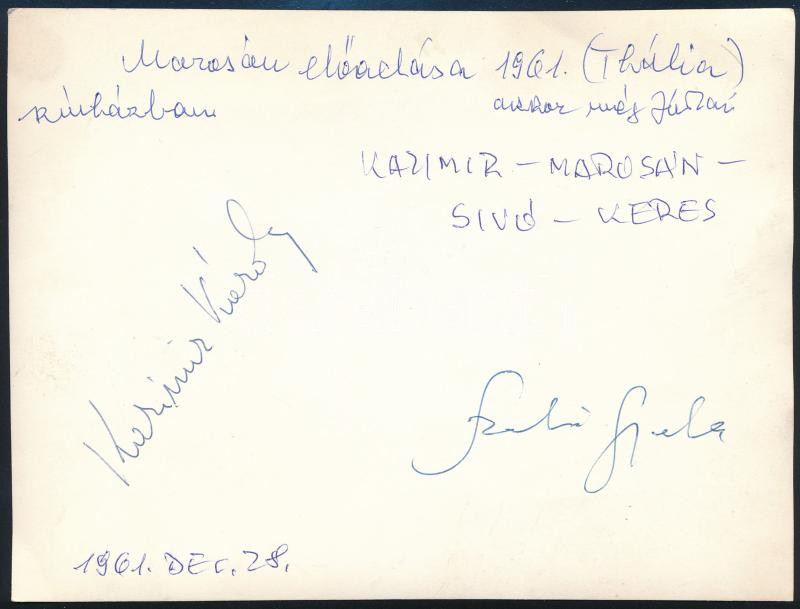 Marosán előadása 1961. (Thália)
színházban akkor még Jókai
KAZIMIR – MAROSÁN –
SIVÓ – KERES
Kazimir Károly
Szabó Gyula
1961. DEC. 28.